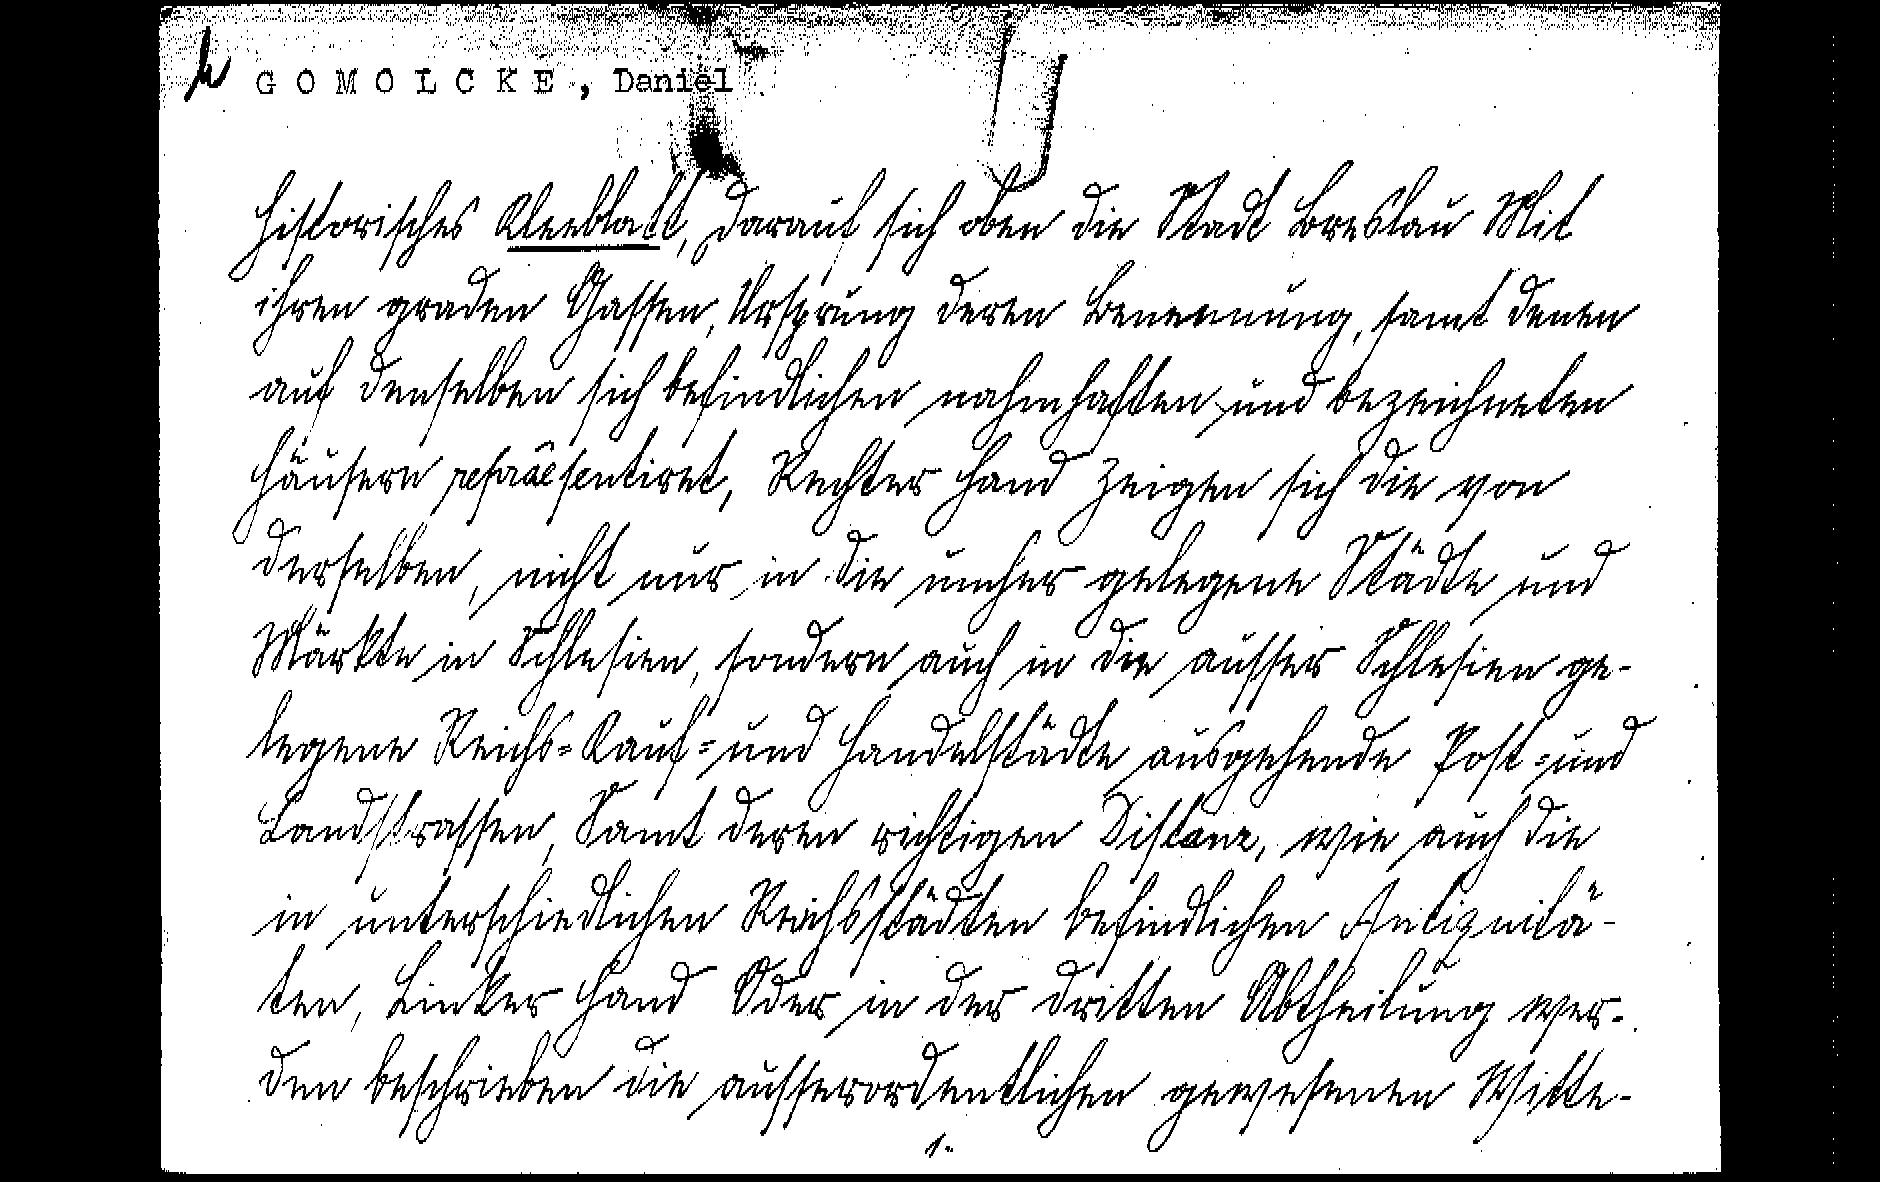 G O M O L C K E , Daniel
Historisches Kleeblatt, darauf sich oben die Stadt Breslau Mit
ihren graden Gassen, Ursprung deren Benennung, samt denen
auf denselben sich befindlichen nahmhaften und bezeichneten
Häusern repraesentiret, Rechter Hand zeigen sich die von
derselben, nicht nur in die umher gelegene Städte und
Märkte in Schlesien, sondern auch in die ausser Schlesien ge-
legene Reichs= Kauf= und Handelstädte ausgehende Post= und
Landstrassen, Samt deren richtigen Distanz, wie auch die
in unterschiedlichen Reichsstädten befindlichen Antiquitä-
ten, Linker Hand Oder in der dritten Abtheilung wer-
den beschrieben die ausserordentlichen gewesenen Witte-
1.